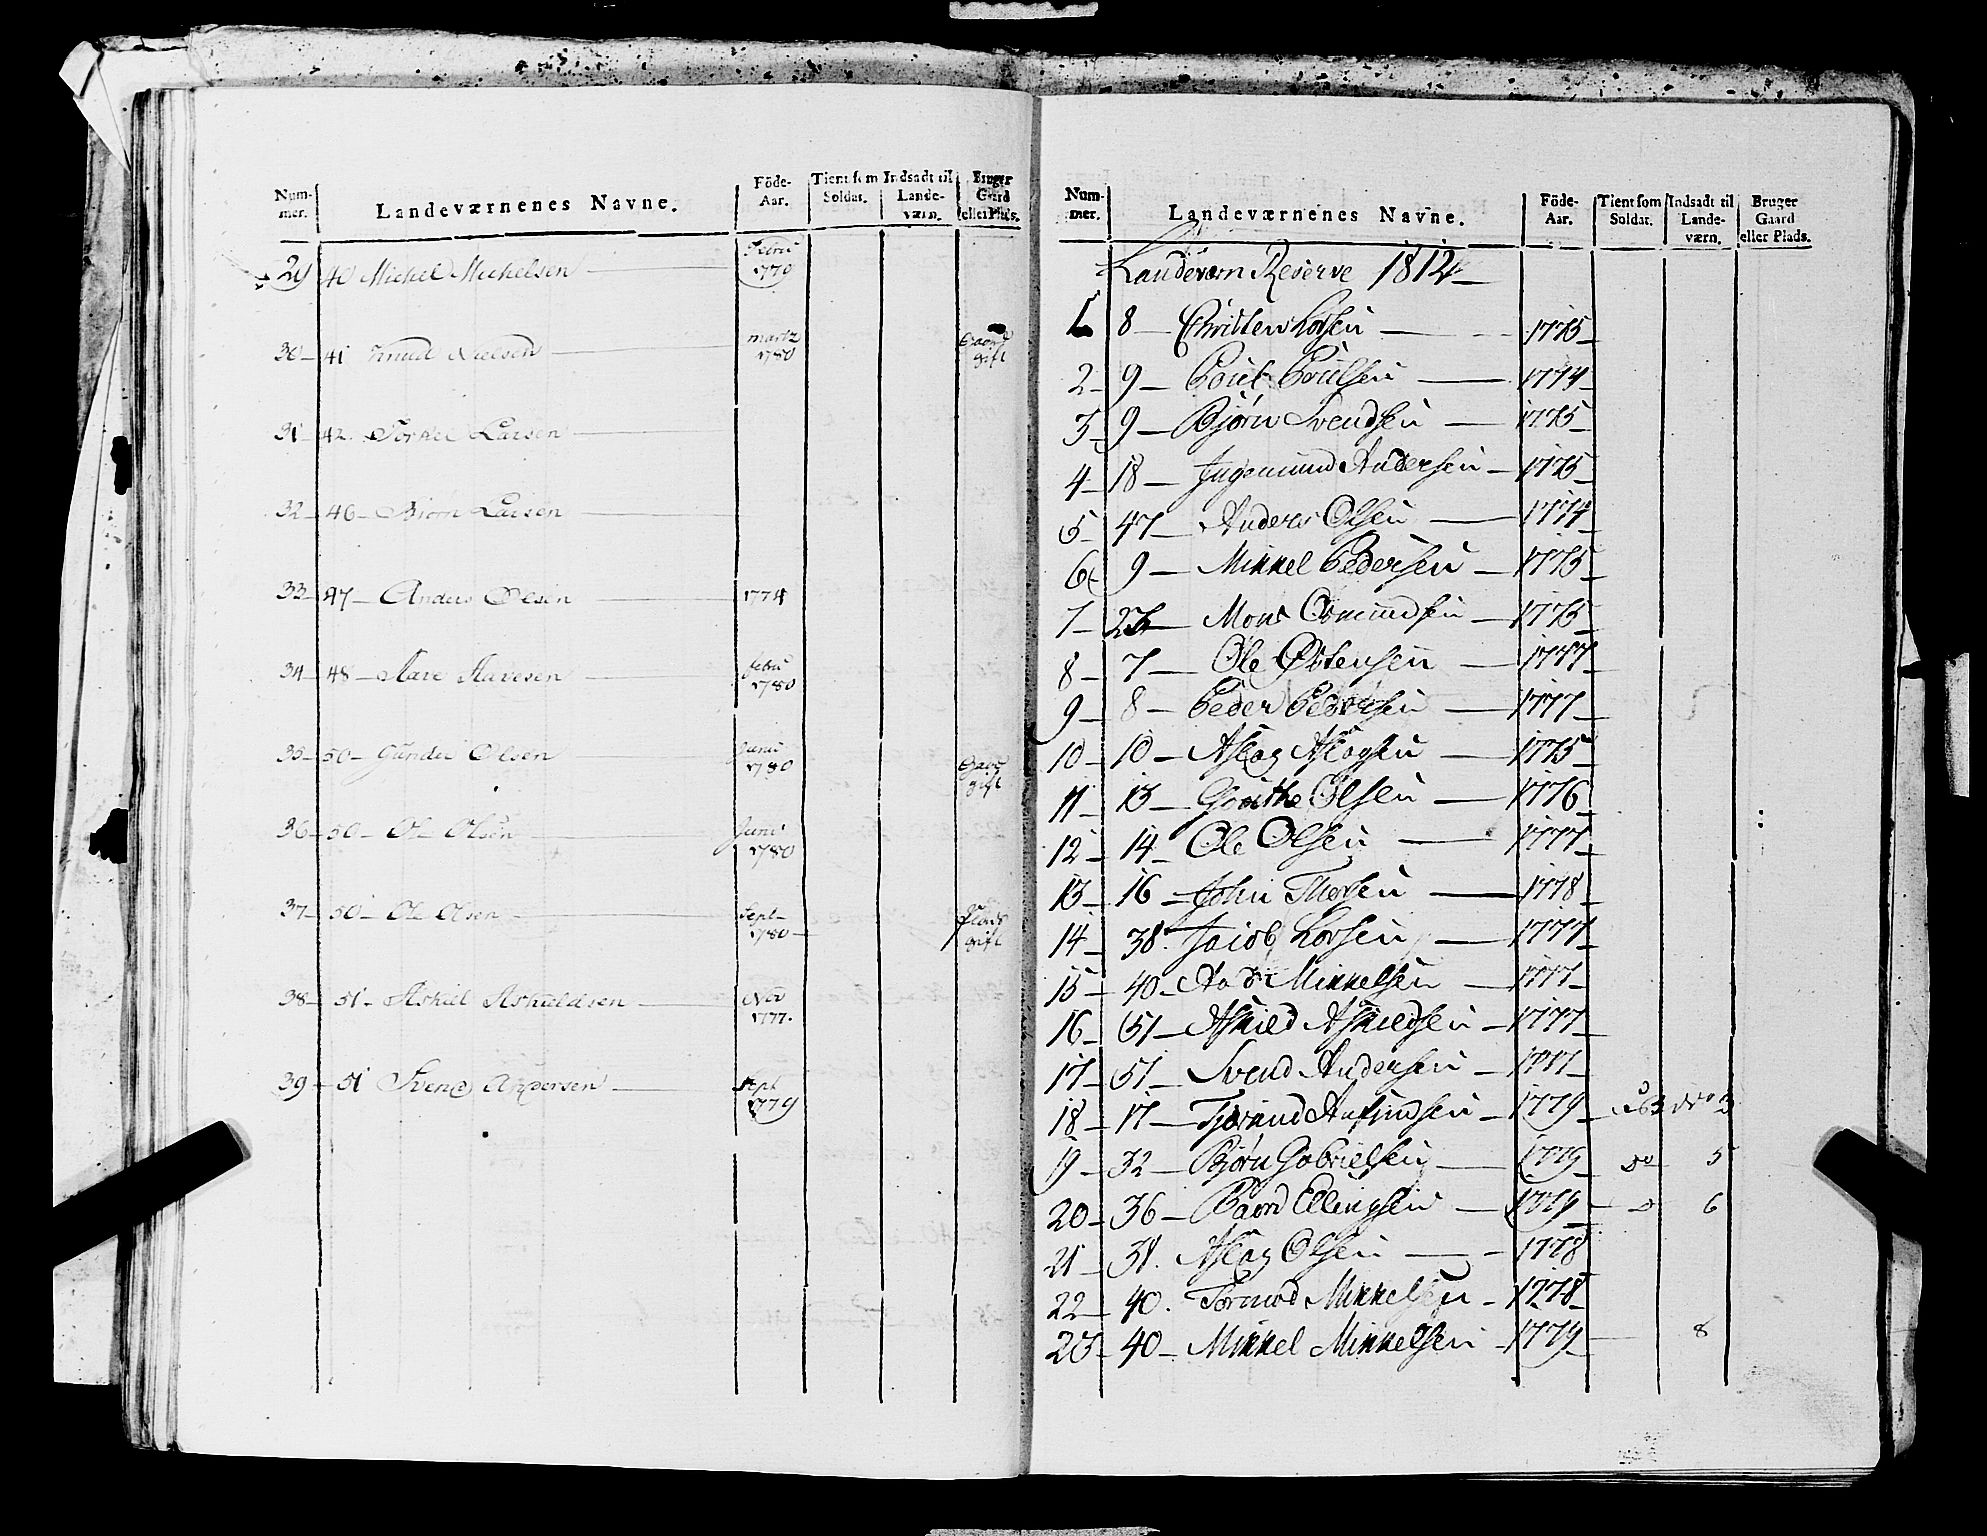 Num-
mer.
Landeværnenes Navne.
Föde-
Aar.
Tient som
Soldat.
Indsadt til
Lande-
værn.
Bruger
Gaard
eller Plads.
29 40 Michel Michelsen Febru 1779
30 41 Knud Nielsen martz 1780 Gaard gift
31 42. Torkel Larsen
32 46 Biørn Larsen
33 47 Anders Olsen 1774
34 48 Aave Aavesen febru 1780
35 50 Gunder Olsen Junii 1780 gift
36 50 Ole Olsen Junii 1780
37 50 Ole Olsen Sept 1780 Plads gift
38 51 Askiel Askieldsen Nov 1777.
39 51 Svend Andersen Sept 1779
Num-
mer.
Landeværnenes Navne.
Föde-
Aar.
Tient som
Soldat.
Indsadt til
Lande-
værn.
Bruger
Gaard
eller Plads.
Landeværn Reserve 1812
1 8 Christen Larsen 1775
2 9 Poul Poulsen 1774
3 9 Bjørn Svendsen 1775
4 18 Ingemund Andersen 1775
5 47 Anders Olsen 1774
6 9 Mikkel Pedersen 1775
7 Mons Osmundsen 1775
8 7 Ole Østensen 1777
9 8 Peder Pedersen 1777
10 10 Aslag Aslagsen 1775
11 13 Olsen 1776
12 14 Ole Olsen 1777
13 16 John Thorsen 1778
14 38. Jacob Larsen 1777
15 40 Mikkelsen 1777
16 51 Askield Askieldsen 1777
17 51 Svend Andersen 1777
18 17 1779
19 32 Bjørn Gabrielsen 1779 do 5
20 36 Baard Ellingsen 1779 6
21 38. Aslag Olsen 1778
22 40. Tormod Mikkelsen 1778
23 40 Mikkel Mikkelsen 1779 8